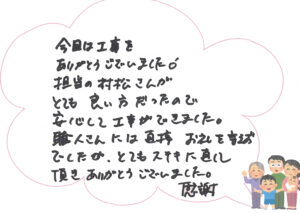 今回は工事を
ありがとうございました。
担当の村松さんが
とても 良い方だったので
安心して工事ができました。
職人さんには直接 お礼を言えず
でしたが、とてもステキに直して
頂きありがとうございました。
感謝